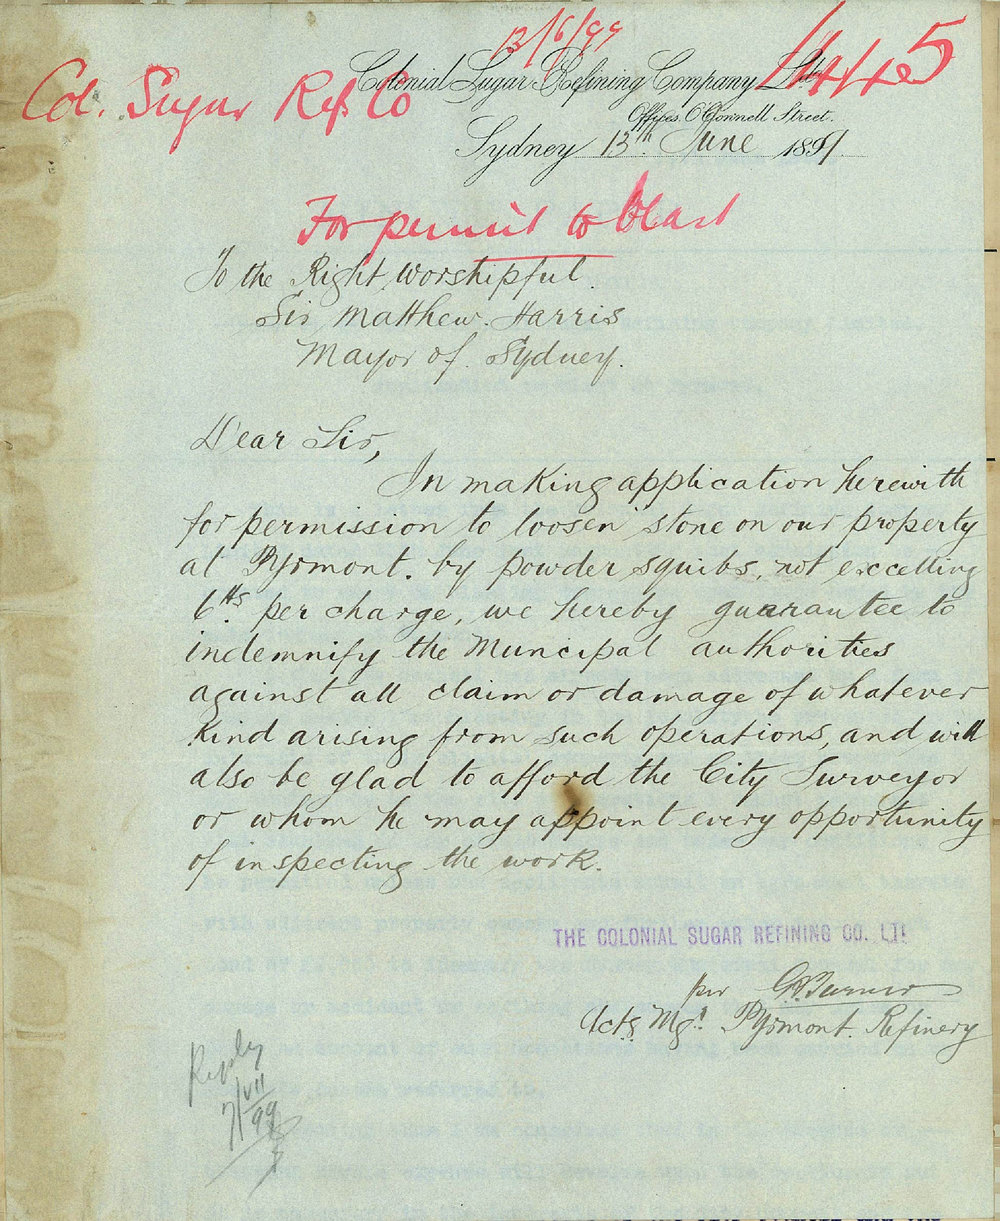 13/6/99
1445
Col. Sugar Ref. Co
Colonial Sugar Refining Company Ltd.
Offices. O'Connell Street.
Sydney 13th June 1899.
For permit to blast
To the Right Worshipful.
Sir Matthew Harris
Mayor of Sydney.
Dear Sir,
In making application herewith
for permission to loosen stone on our property
at Pyrmont. by powder squibs, not excelling
6 per charge, we hereby guarantee to
indemnify the Municipal authorities
against all claim or damage of whatever
kind arising from such operations, and will
also be glad to afford the City Surveyor
or whom he may appoint every opportunity
of inspecting the work.
THE COLONIAL SUGAR REFINING CO. LTD
per
Actg Mgr Pyrmont Refinery
Reply
7/VII/99